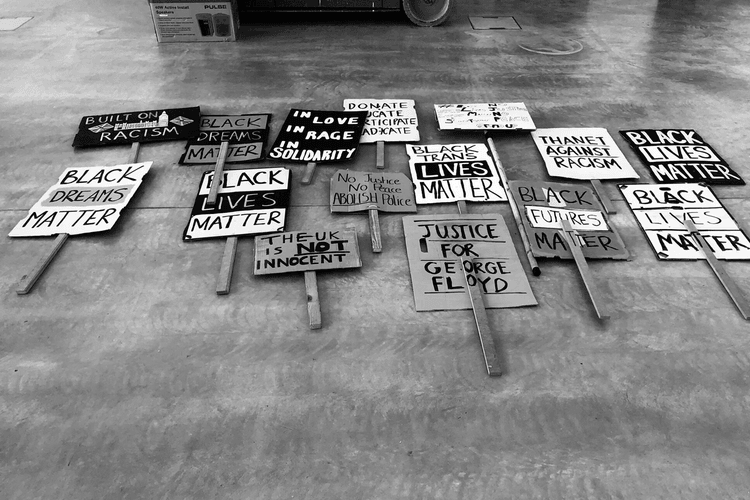 PULSE
BUILT ON
RACISM
BLACK
DREAMS
MATTER
IN LOVE
IN RAGE
IN SOLIDARITY
DONATE
BLACK
LIVES
MATTER
BLACK
TRANS
LIVES
MATTER
THANET
AGAINST
RACISM
BLACK
LIVES
MATTER
BLACK
DREAMS
MATTER
No Justice
No Peace
ABOLISH POLICE
BLACK
FUTURES
MATTER
BLACK
LIVES
MATTER
THE UK
IS NOT
INNOCENT
JUSTICE
FOR
GEORGE
FLOYD